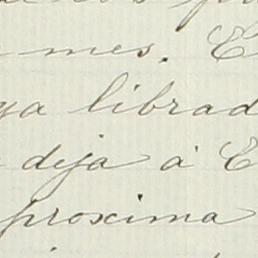 mes. E
ya librad
deja á E
proxima